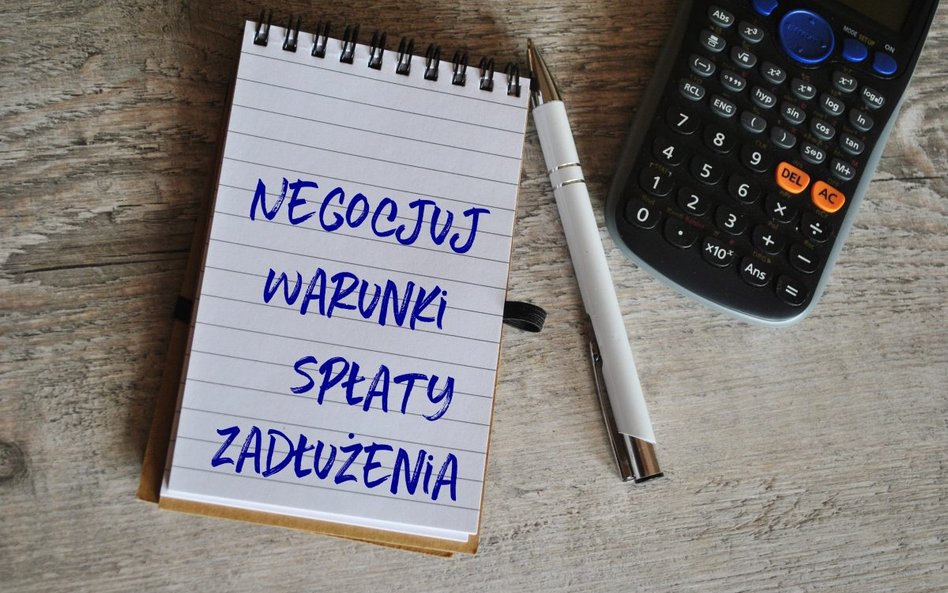 NEGOCJUJ
WARUNKi
SPŁATY
ZADŁUŻENiA
MODE SETUP
ON
Abs
x³
x⁻¹
log
(−)
x²
ln
RCL
ENG
hyp
sin
cos
tan
(
)
S⇔D
M+
7
8
9
DEL
AC
4
5
6
×
÷
1
2
3
+
−
0
.
×10ˣ
Ans
=